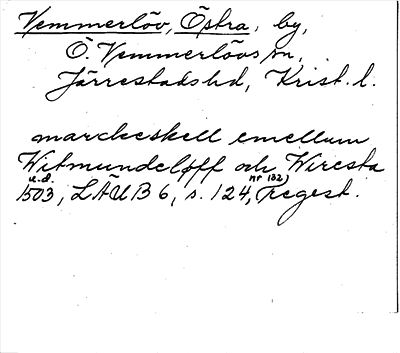 Vemmerlöv, Östra, by,
Ö. Vemmerlövs sn,
Järrestads hd, Krist. l.
marckeskell emellum
Witmundeloff och Wiresta
u.d. nr 132)
1503, LÄUB 6, s. 124, regest.